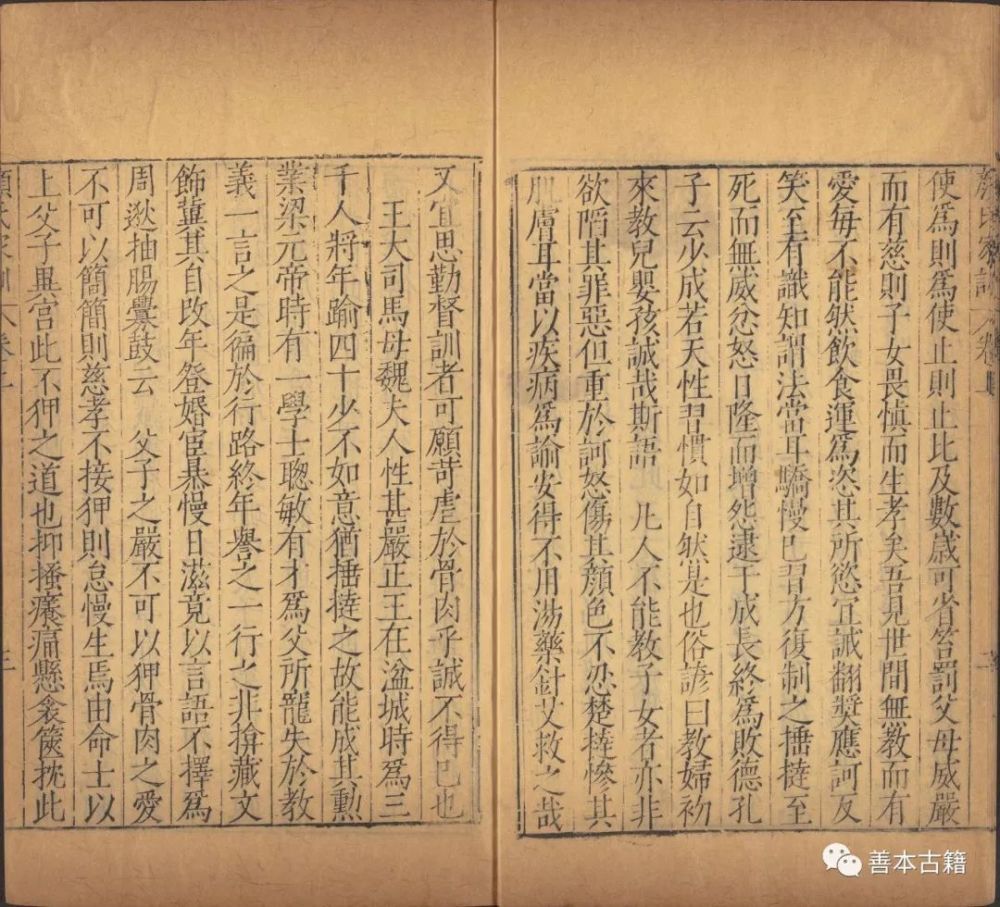 使爲則爲使止則止比及數歲可省笞罰父母威嚴
而有慈則子女畏慎而生孝矣吾見世間無教而有
愛每不能然飲食運爲恣其所慾宜誡翻奬應訶反
笑至有識知謂法當耳驕慢已習方復制之捶撻至
死而無威忿怒日隆而增怨逮于成長終爲敗德孔
子云少成若天性習慣如自然是也俗諺曰教婦初
來教兒嬰孩誠哉斯語 凡人不能教子女者亦非
欲陷其罪惡但重於訶怒傷其顏色不忍楚撻慘其
肌膚耳當以疾病爲諭安得不用湯藥針艾救之哉
又宜思勤督訓者可願苛虐於骨肉乎誠不得已也
王大司馬母魏夫人性甚嚴正王在湓城時爲三
千人將年踰四十少不如意猶捶撻之故能成其勳
業梁元帝時有一學士聰敏有才爲父所寵失於教
義一言之是徧於行路終年譽之一行之非揜藏文
飾冀其自改年登婚宦暴慢日滋竟以言語不擇爲
周逖抽腸釁鼓云 父子之嚴不可以狎骨肉之愛
不可以簡簡則慈孝不接狎則怠慢生焉由命士以
上父子異宮此不狎之道也抑搔癢痛懸衾篋枕此
善本古籍